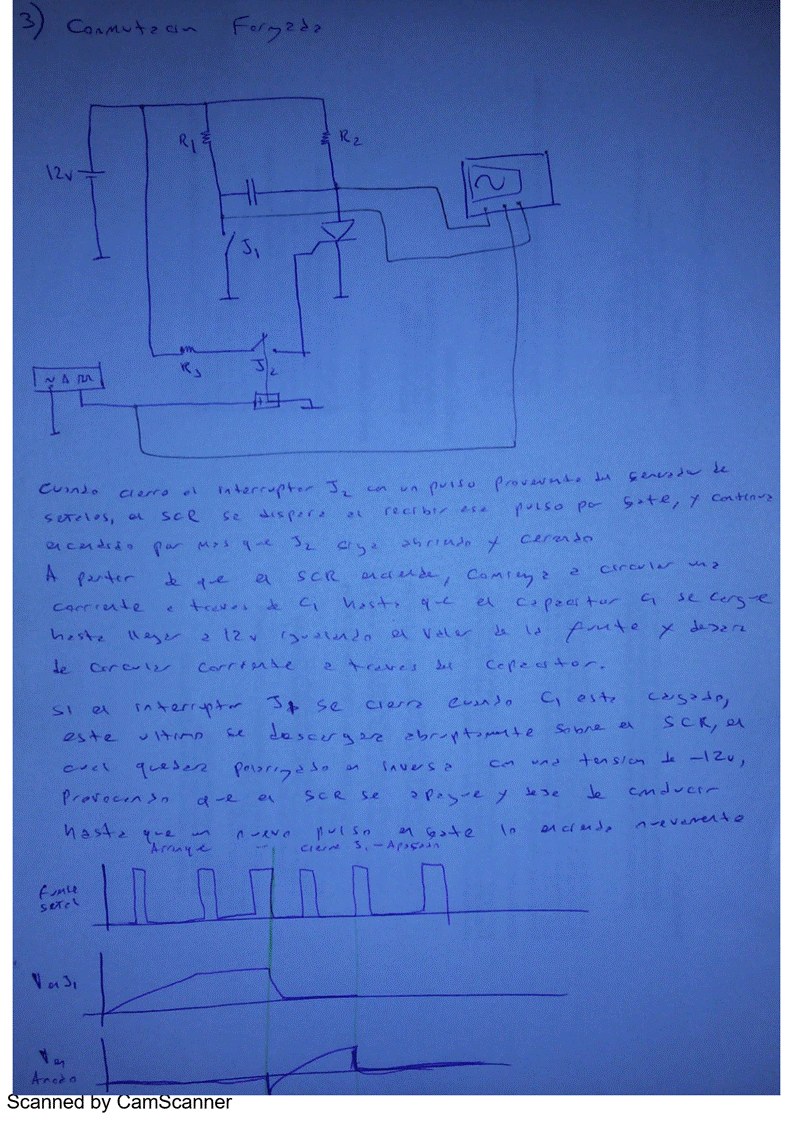 3) Conmutacion Forzada
R1
R2
12v
J1
R3
J2
Cuando cierro el interruptor J2 con un pulso proveniente del generador de
señales, el SCR se dispara al recibir ese pulso por Gate, y continua
encendido por mas que J2 siga abriendo y cerrando
A partir de que el SCR enciende, comienza a circular una
corriente a traves de C1 hasta que el capacitor C1 se cargue
hasta llegar a 12v igualando el valor de la fuente y dejara
de circular corriente a traves del capacitor.
Si el interruptor J1 se cierra cuando C1 esta cargado,
este ultimo se descargara abruptamente sobre el SCR, el
cual quedara polarizado en inversa con una tension de -12v,
Provocando que el SCR se apague y deje de conducir
hasta que un nuevo pulso en Gate lo encienda nuevamente
Arranque
cierre J1 - Apagado
Fuente
señal
V en J1
V en
Anodo
Scanned by CamScanner